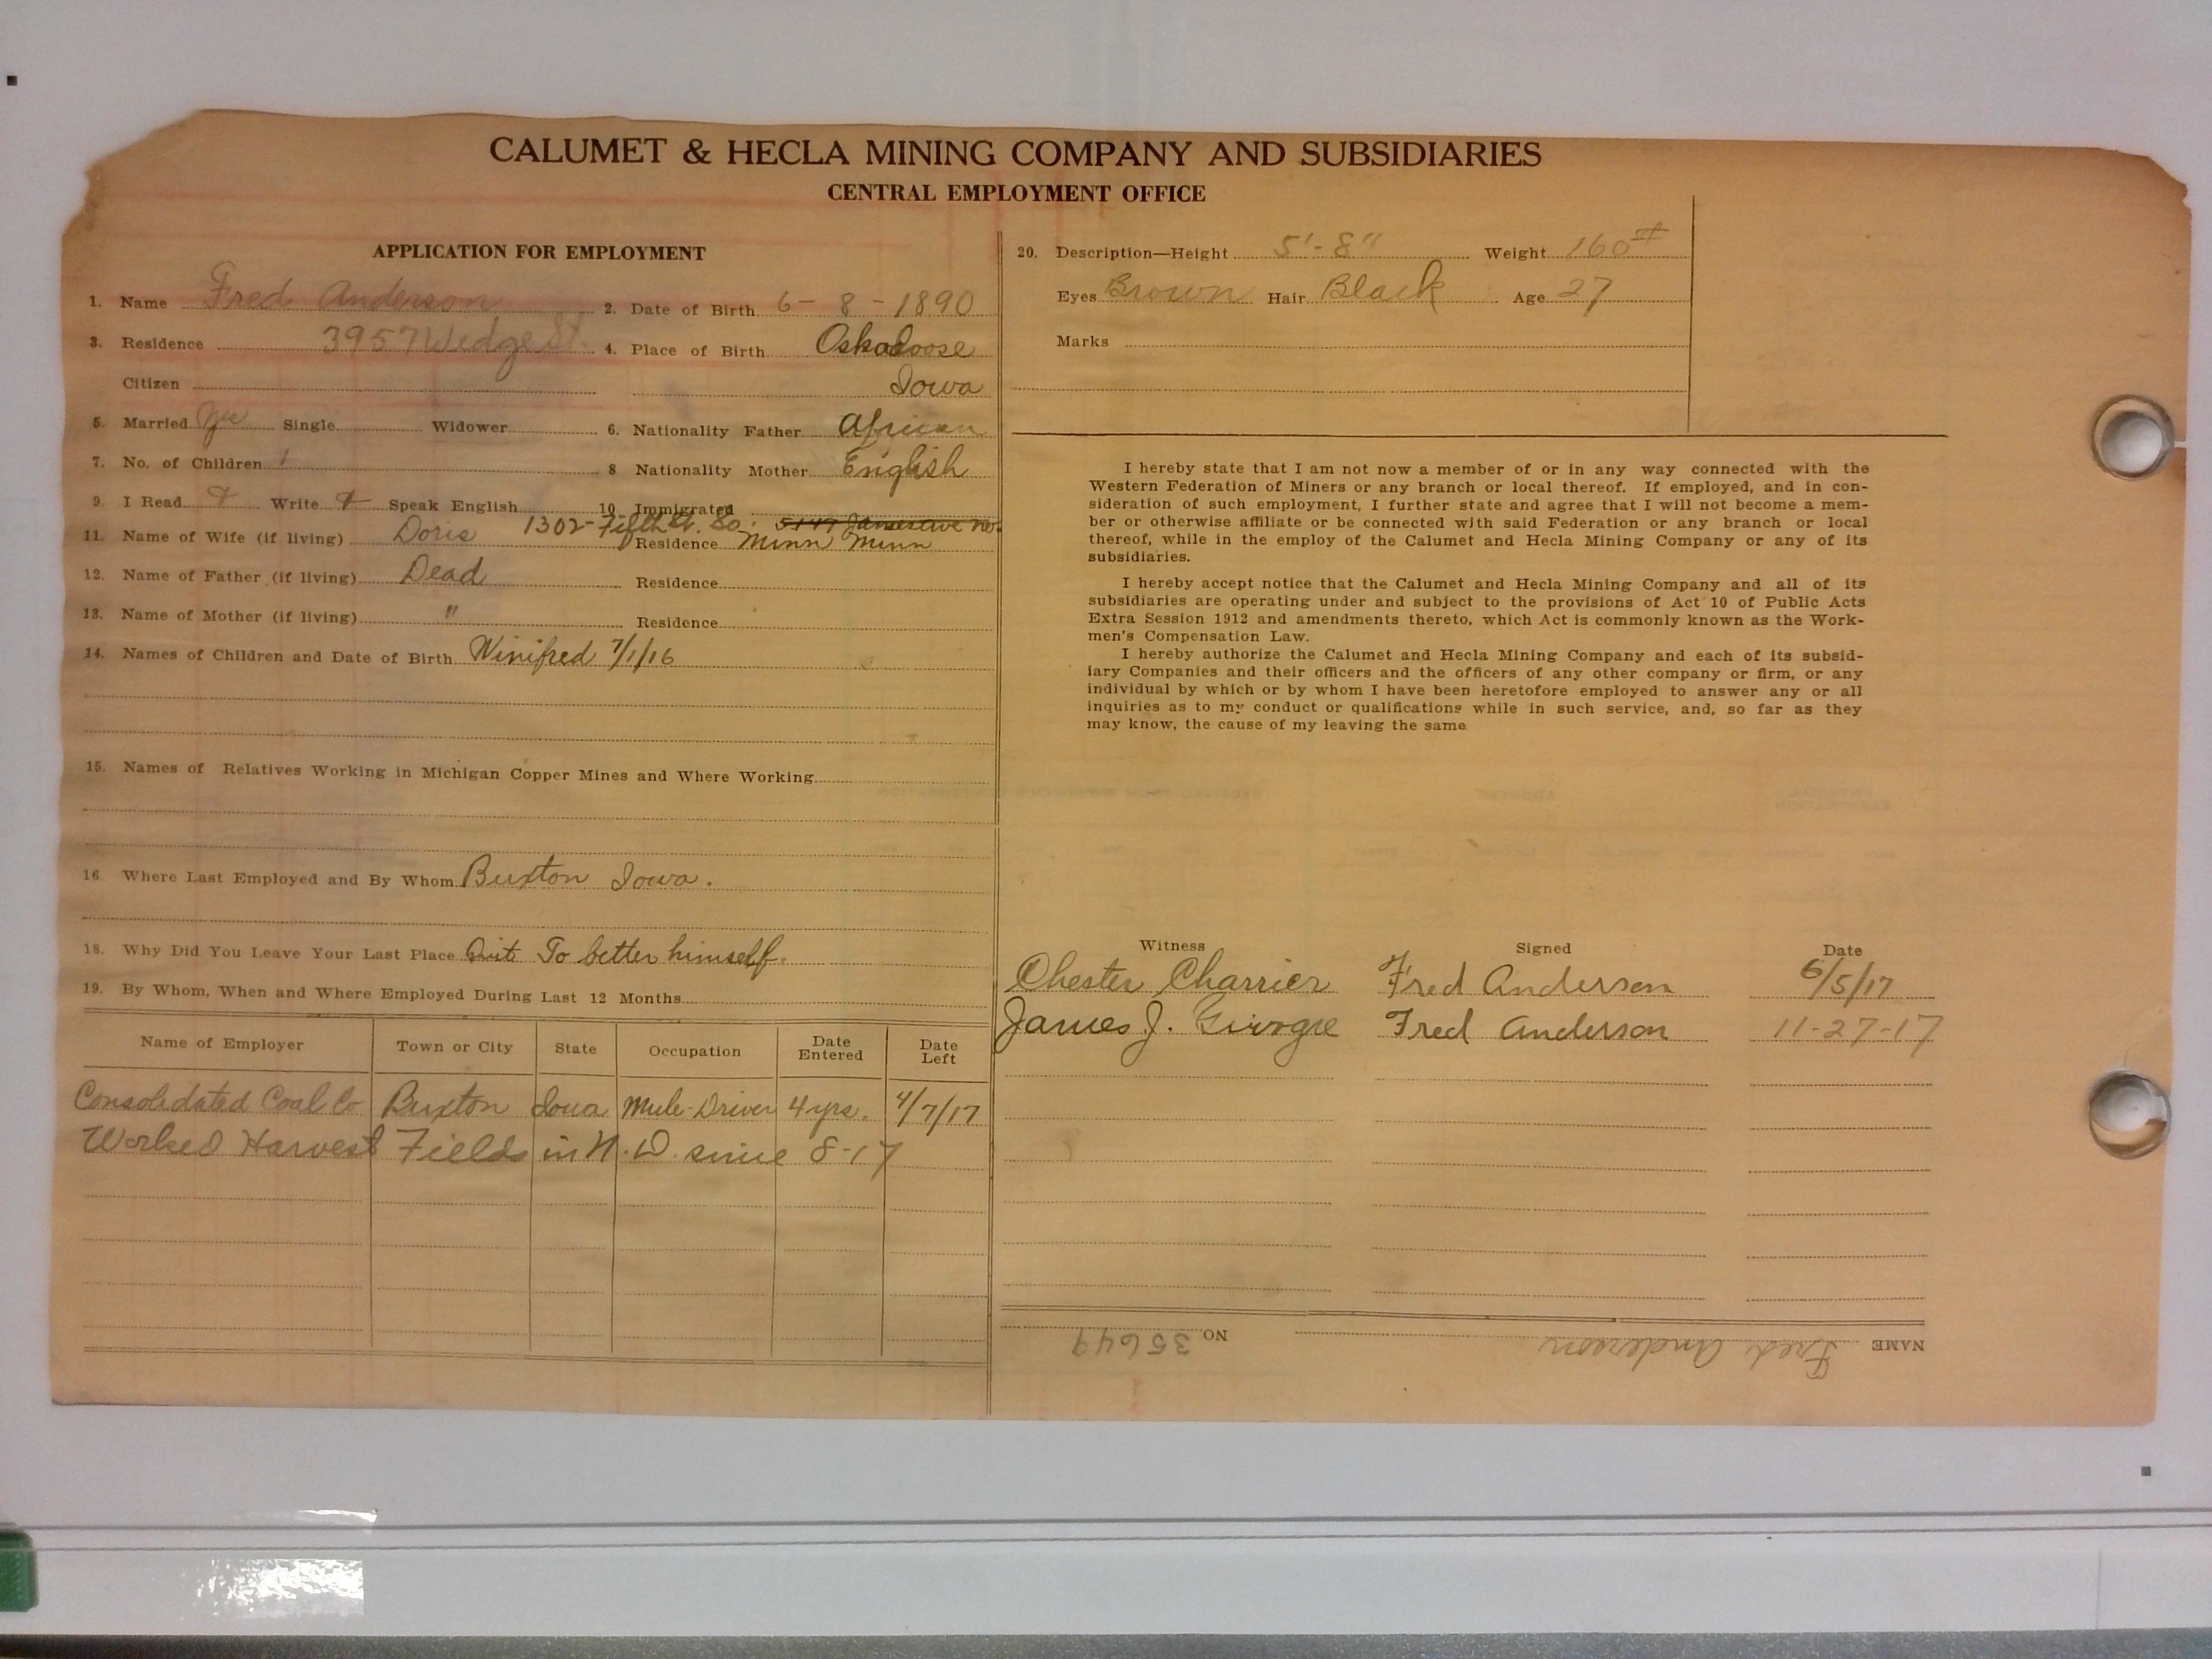 CALUMET & HECLA MINING COMPANY AND SUBSIDIARIES
CENTRAL EMPLOYMENT OFFICE
APPLICATION FOR EMPLOYMENT
1. Name Fred Anderson 2. Date of Birth 6-8-1890
3. Residence 3957 Wedge St. 4. Place of Birth Oskaloose
Citizen Iowa
5. Married Yes Single Widower 6. Nationality Father African
7. No. of Children 1 8 Nationality Mother English
9. I Read Write Speak English 10 Immigrated
1302-Fifth St. So.
11. Name of Wife (if living) Doris Residence Minn Minn
12. Name of Father (if living) Dead Residence
13. Name of Mother (if living) " Residence
14. Names of Children and Date of Birth Winifred 7/1/16
15. Names of Relatives Working in Michigan Copper Mines and Where Working
16. Where Last Employed and By Whom Buxton Iowa.
18. Why Did You Leave Your Last Place Quit To better himself.
19. By Whom, When and Where Employed During Last 12 Months
Name of Employer Town or City State Occupation Date Entered Date Left
Consolidated Coal Co Buxton Iowa Mule-Driver 4 yrs. 4/7/17
Worked Harvest Fields in N.D. since 8-17
20. Description—Height 5'-8" Weight 160#
Eyes Brown Hair Black Age 27
Marks
I hereby state that I am not now a member of or in any way connected with the
Western Federation of Miners or any branch or local thereof. If employed, and in con-
sideration of such employment, I further state and agree that I will not become a mem-
ber or otherwise affiliate or be connected with said Federation or any branch or local
thereof, while in the employ of the Calumet and Hecla Mining Company or any of its
subsidiaries.
I hereby accept notice that the Calumet and Hecla Mining Company and all of its
subsidiaries are operating under and subject to the provisions of Act 10 of Public Acts
Extra Session 1912 and amendments thereto, which Act is commonly known as the Work-
men's Compensation Law.
I hereby authorize the Calumet and Hecla Mining Company and each of its subsid-
iary Companies and their officers and the officers of any other company or firm, or any
individual by which or by whom I have been heretofore employed to answer any or all
inquiries as to my conduct or qualifications while in such service, and, so far as they
may know, the cause of my leaving the same
Witness Signed Date
Chester Charrier Fred Anderson 6/5/17
James J. Fred Anderson 11-27-17
NAME Fred Anderson NO 35649